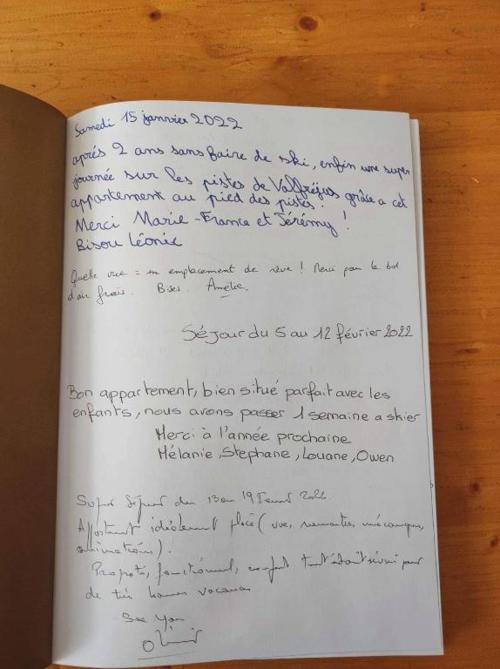 Samedi 15 janvier 2022
après 2 ans sans faire de ski, enfin une super
journée sur les pistes de Valfréjus grâce a cet
appartement au pied des pistes.
Merci Marie-France et Jérémy !
Bisou Léonie
Quelle vue = un emplacement de rêve ! Merci pour le bol
d'air frais. Bises. Amélie
Séjour du 5 au 12 février 2022
Bon appartement, bien situé parfait avec les
enfants, nous avons passer 1 semaine a skier
Merci à l'année prochaine
Mélanie, Stephane, Louane, Owen
Super Séjour du 13 au 19 Février 2022
Appartement idéalement placé (vue, remontées mécaniques,
animations).
Propreté, fonctionnel, confort tout était réuni pour
de très bonnes vacances